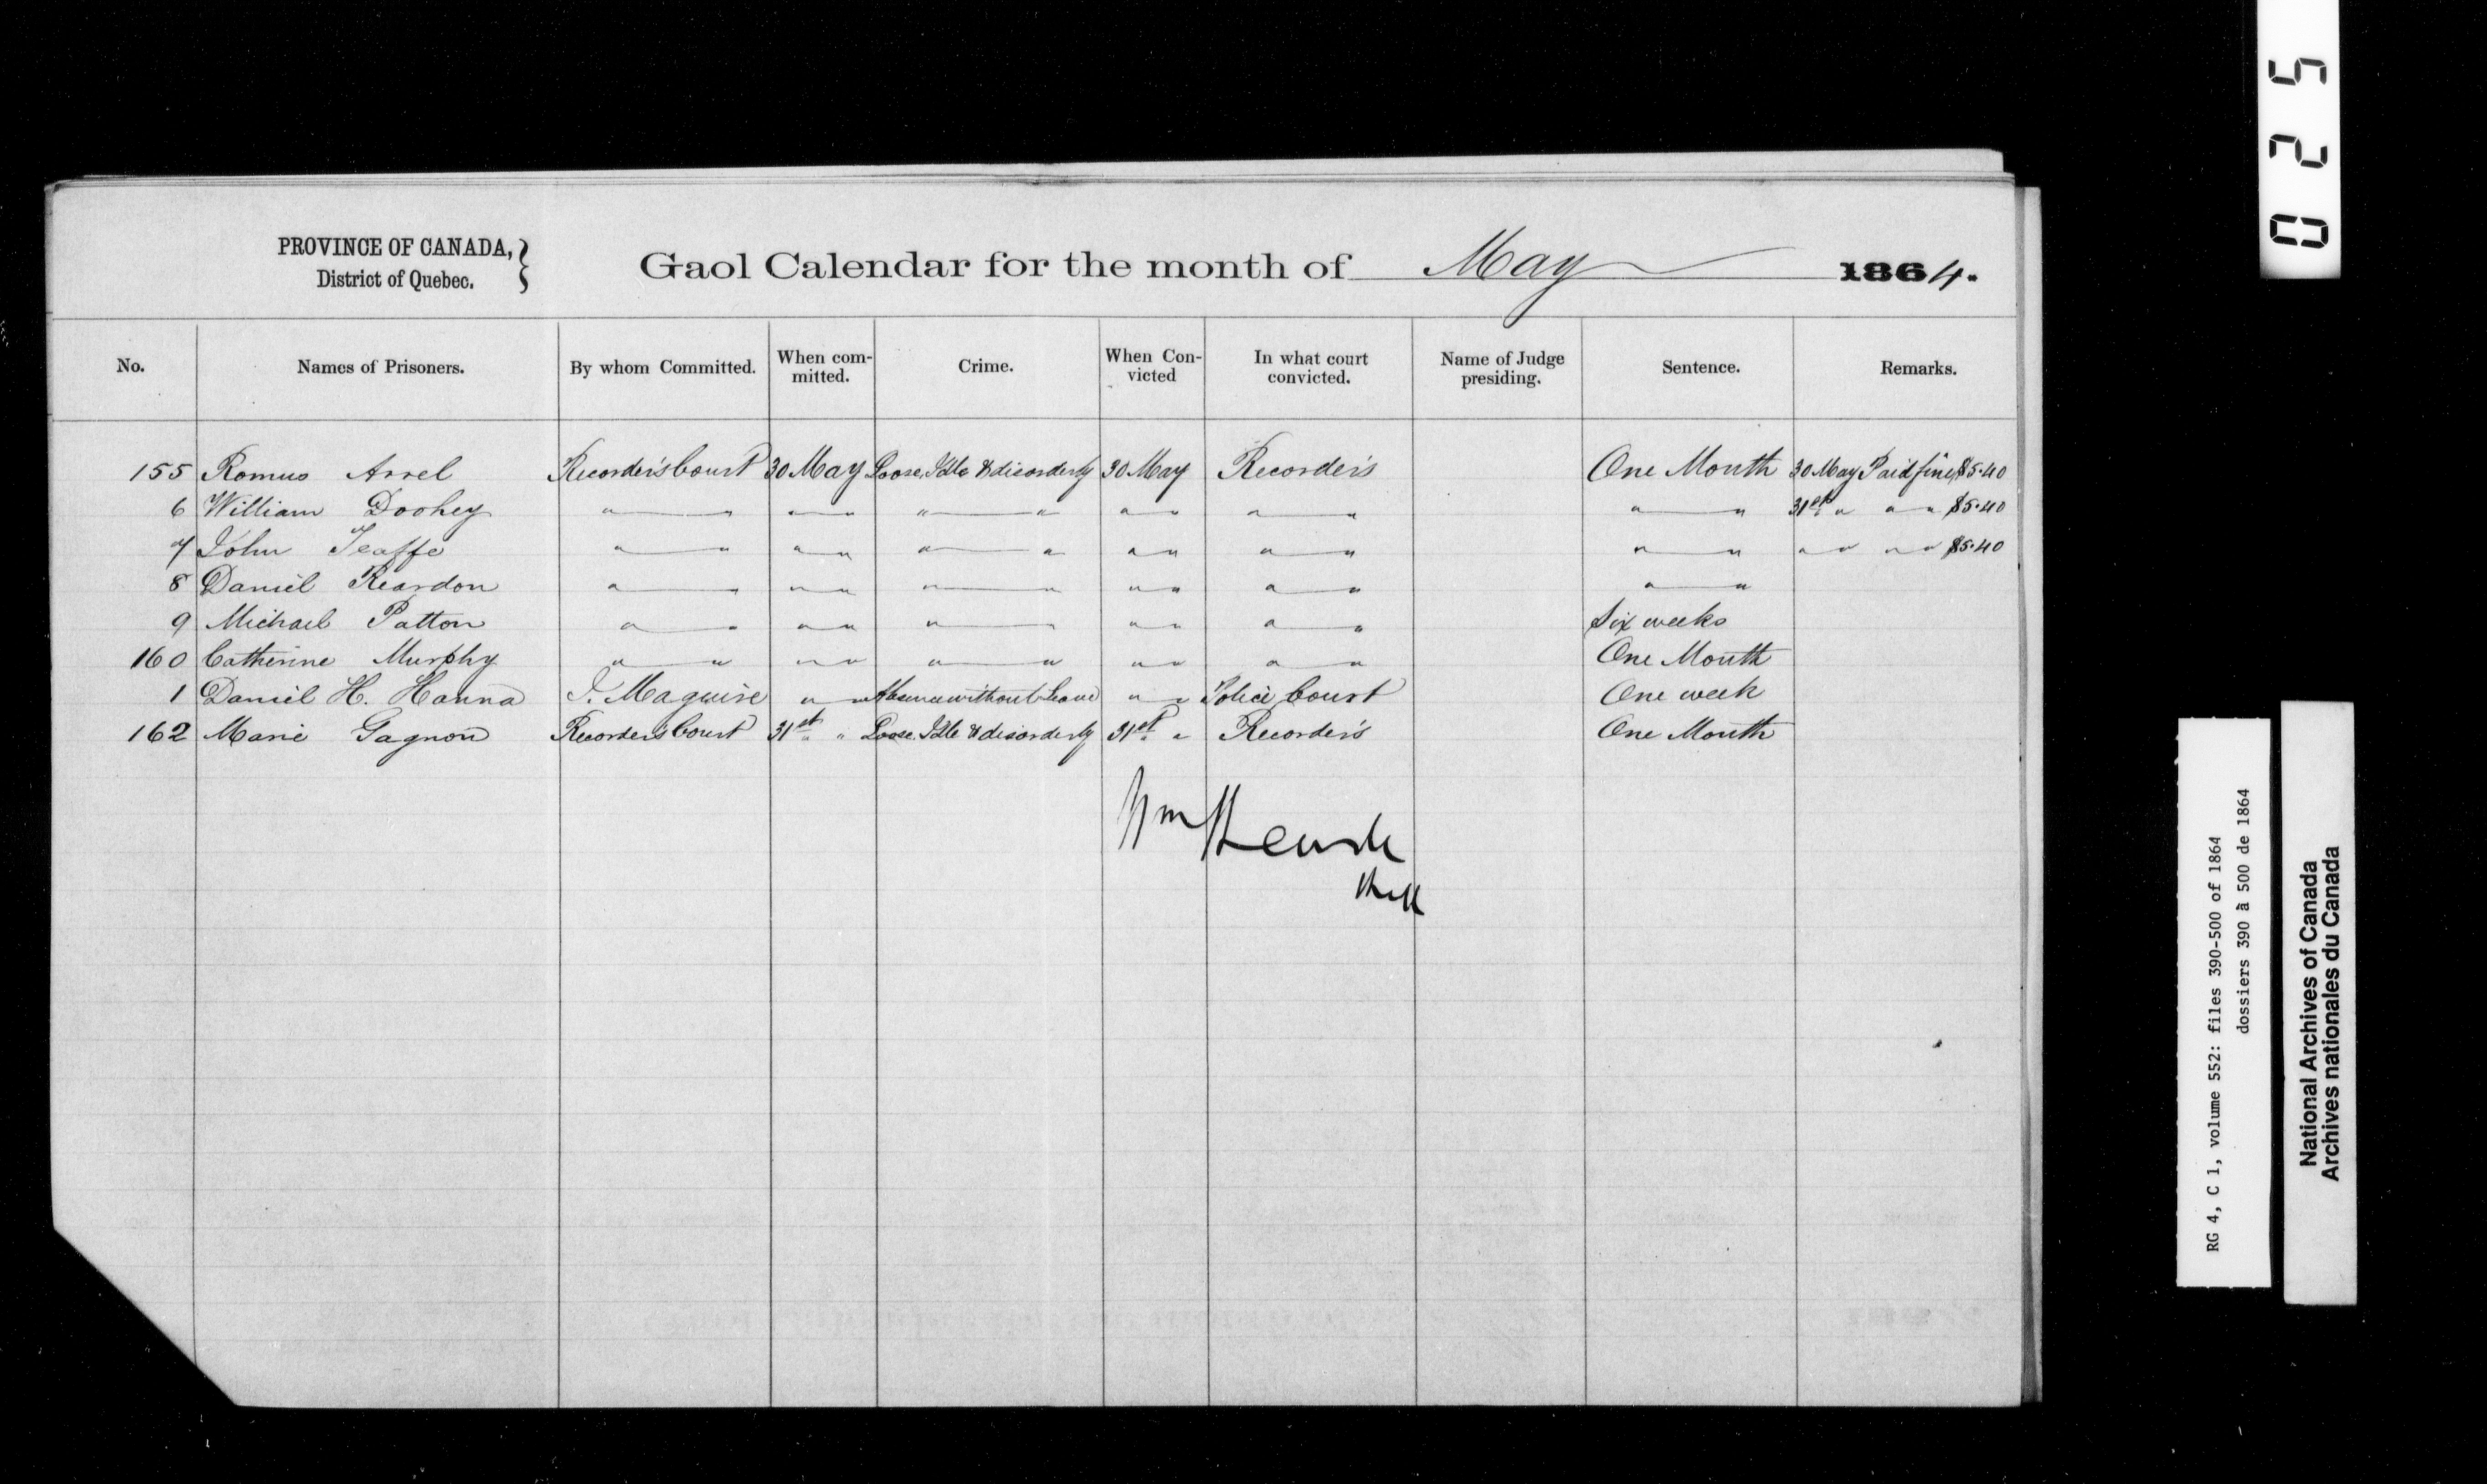 PROVINCE OF CANADA,
District of Quebec.
Gaol Calendar for the month of May 1864.
No. Names of Prisoners. By whom Committed. When com-mitted. Crime. When Con-victed In what court convicted. Name of Judge presiding. Sentence. Remarks.
155 Romus Arrel Recorder's Court 30 May Loose, Idle & disorderly 30 May Recorder's One Month 30 May Paid fine $5.40
6 William Doohey " " " " " " " " " " " " 31st " " " $5.40
7 John Teaffe " " " " " " " " " " " " " " " " $5.40
8 Daniel Reardon " " " " " " " " " " " "
9 Michael Patton " " " " " " " " " " Six weeks
160 Catherine Murphy " " " " " " " " " " One Month
1 Daniel H. Hanna J. Maguire " " Absence without Leave " " Police Court One week
162 Marie Gagnon Recorder's Court 31st " Loose, Idle & disorderly 31st " Recorder's One Month
Wm
025
RG 4, C 1, volume 552: files 390-500 of 1864
dossiers 390 à 500 de 1864
National Archives of Canada
Archives nationales du Canada